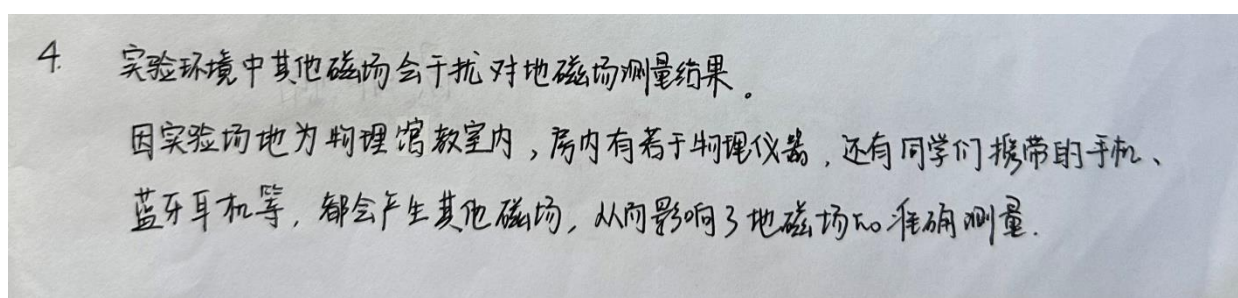 4. 实验环境中其他磁场会干扰对地磁场测量结果。
因实验场地为物理馆教室内，房内有若干物理仪器，还有同学们携带的手机、
蓝牙耳机等，都会产生其他磁场，从而影响了地磁场的准确测量.